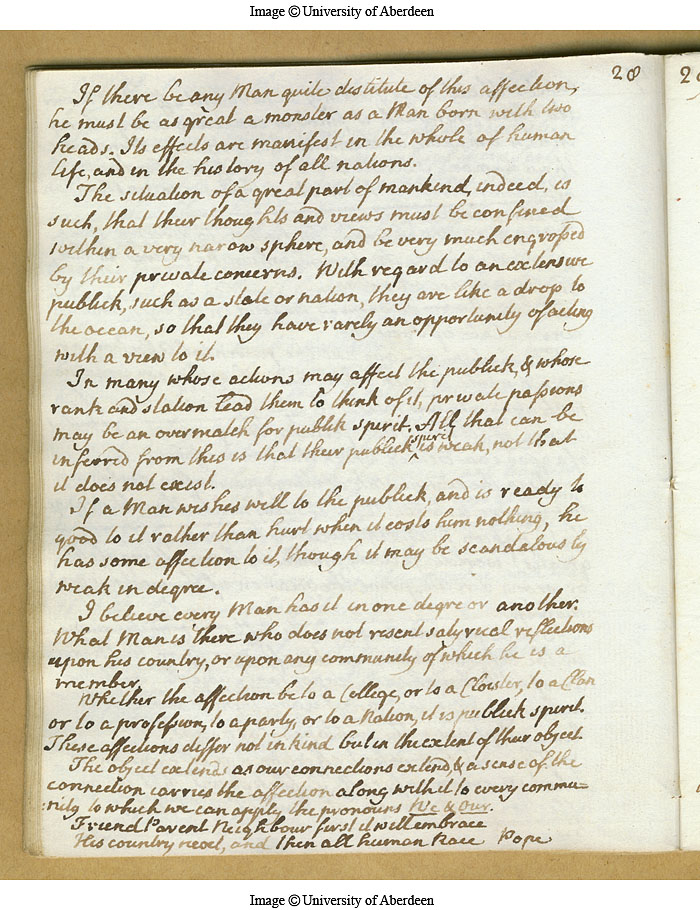 Image © University of Aberdeen
28
2
If there be any Man quite destitute of this affection,
he must be as great a monster as a Man born with two
heads. Its effects are manifest in the whole of human
life, and in the history of all nations.
The situation of a great part of mankind, indeed, is
such, that their thoughts and views must be confined
within a very narow sphere, and be very much engrossed
by their private concerns. With regard to an extensive
publick, such as a state or nation, they are like a drop to
the ocean, so that they have rarely an opportunity of acting
with a view to it.
In many whose actions may affect the publick, & whose
rank and station lead them to think of it, private passions
may be an overmatch for publik spirit. All that can be
inferred from this is that their publick spirit is weak, not that
it does not exist.
If a Man wishes well to the publick, and is ready to
good to it rather than hurt when it costs him nothing, he
has some affection to it, though it may be scandalously
weak in degree.
I believe every Man has it in one degre or another.
What Man is there who does not resent satyrical reflections
upon his country, or upon any community of which he is a
member.
Whether the affection be to a College, or to a Cloister, to a Clan
or to a profession, to a party, or to a Nation, it is publick spirit.
These affections differ not in kind but in the extent of their object.
The object extends as our connections extend, & a sense of the
connection carries the affection along with it to every commu-
nity to which we can apply the pronouns We & Our.
Friend Parent Neighbour first it will embrace
His country next, and then all human Race Pope
Image © University of Aberdeen